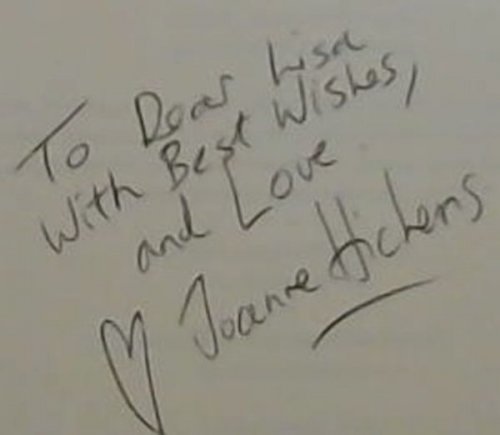 To Dear Lisa
With Best Wishes,
and Love
♡ Joanne Hichens